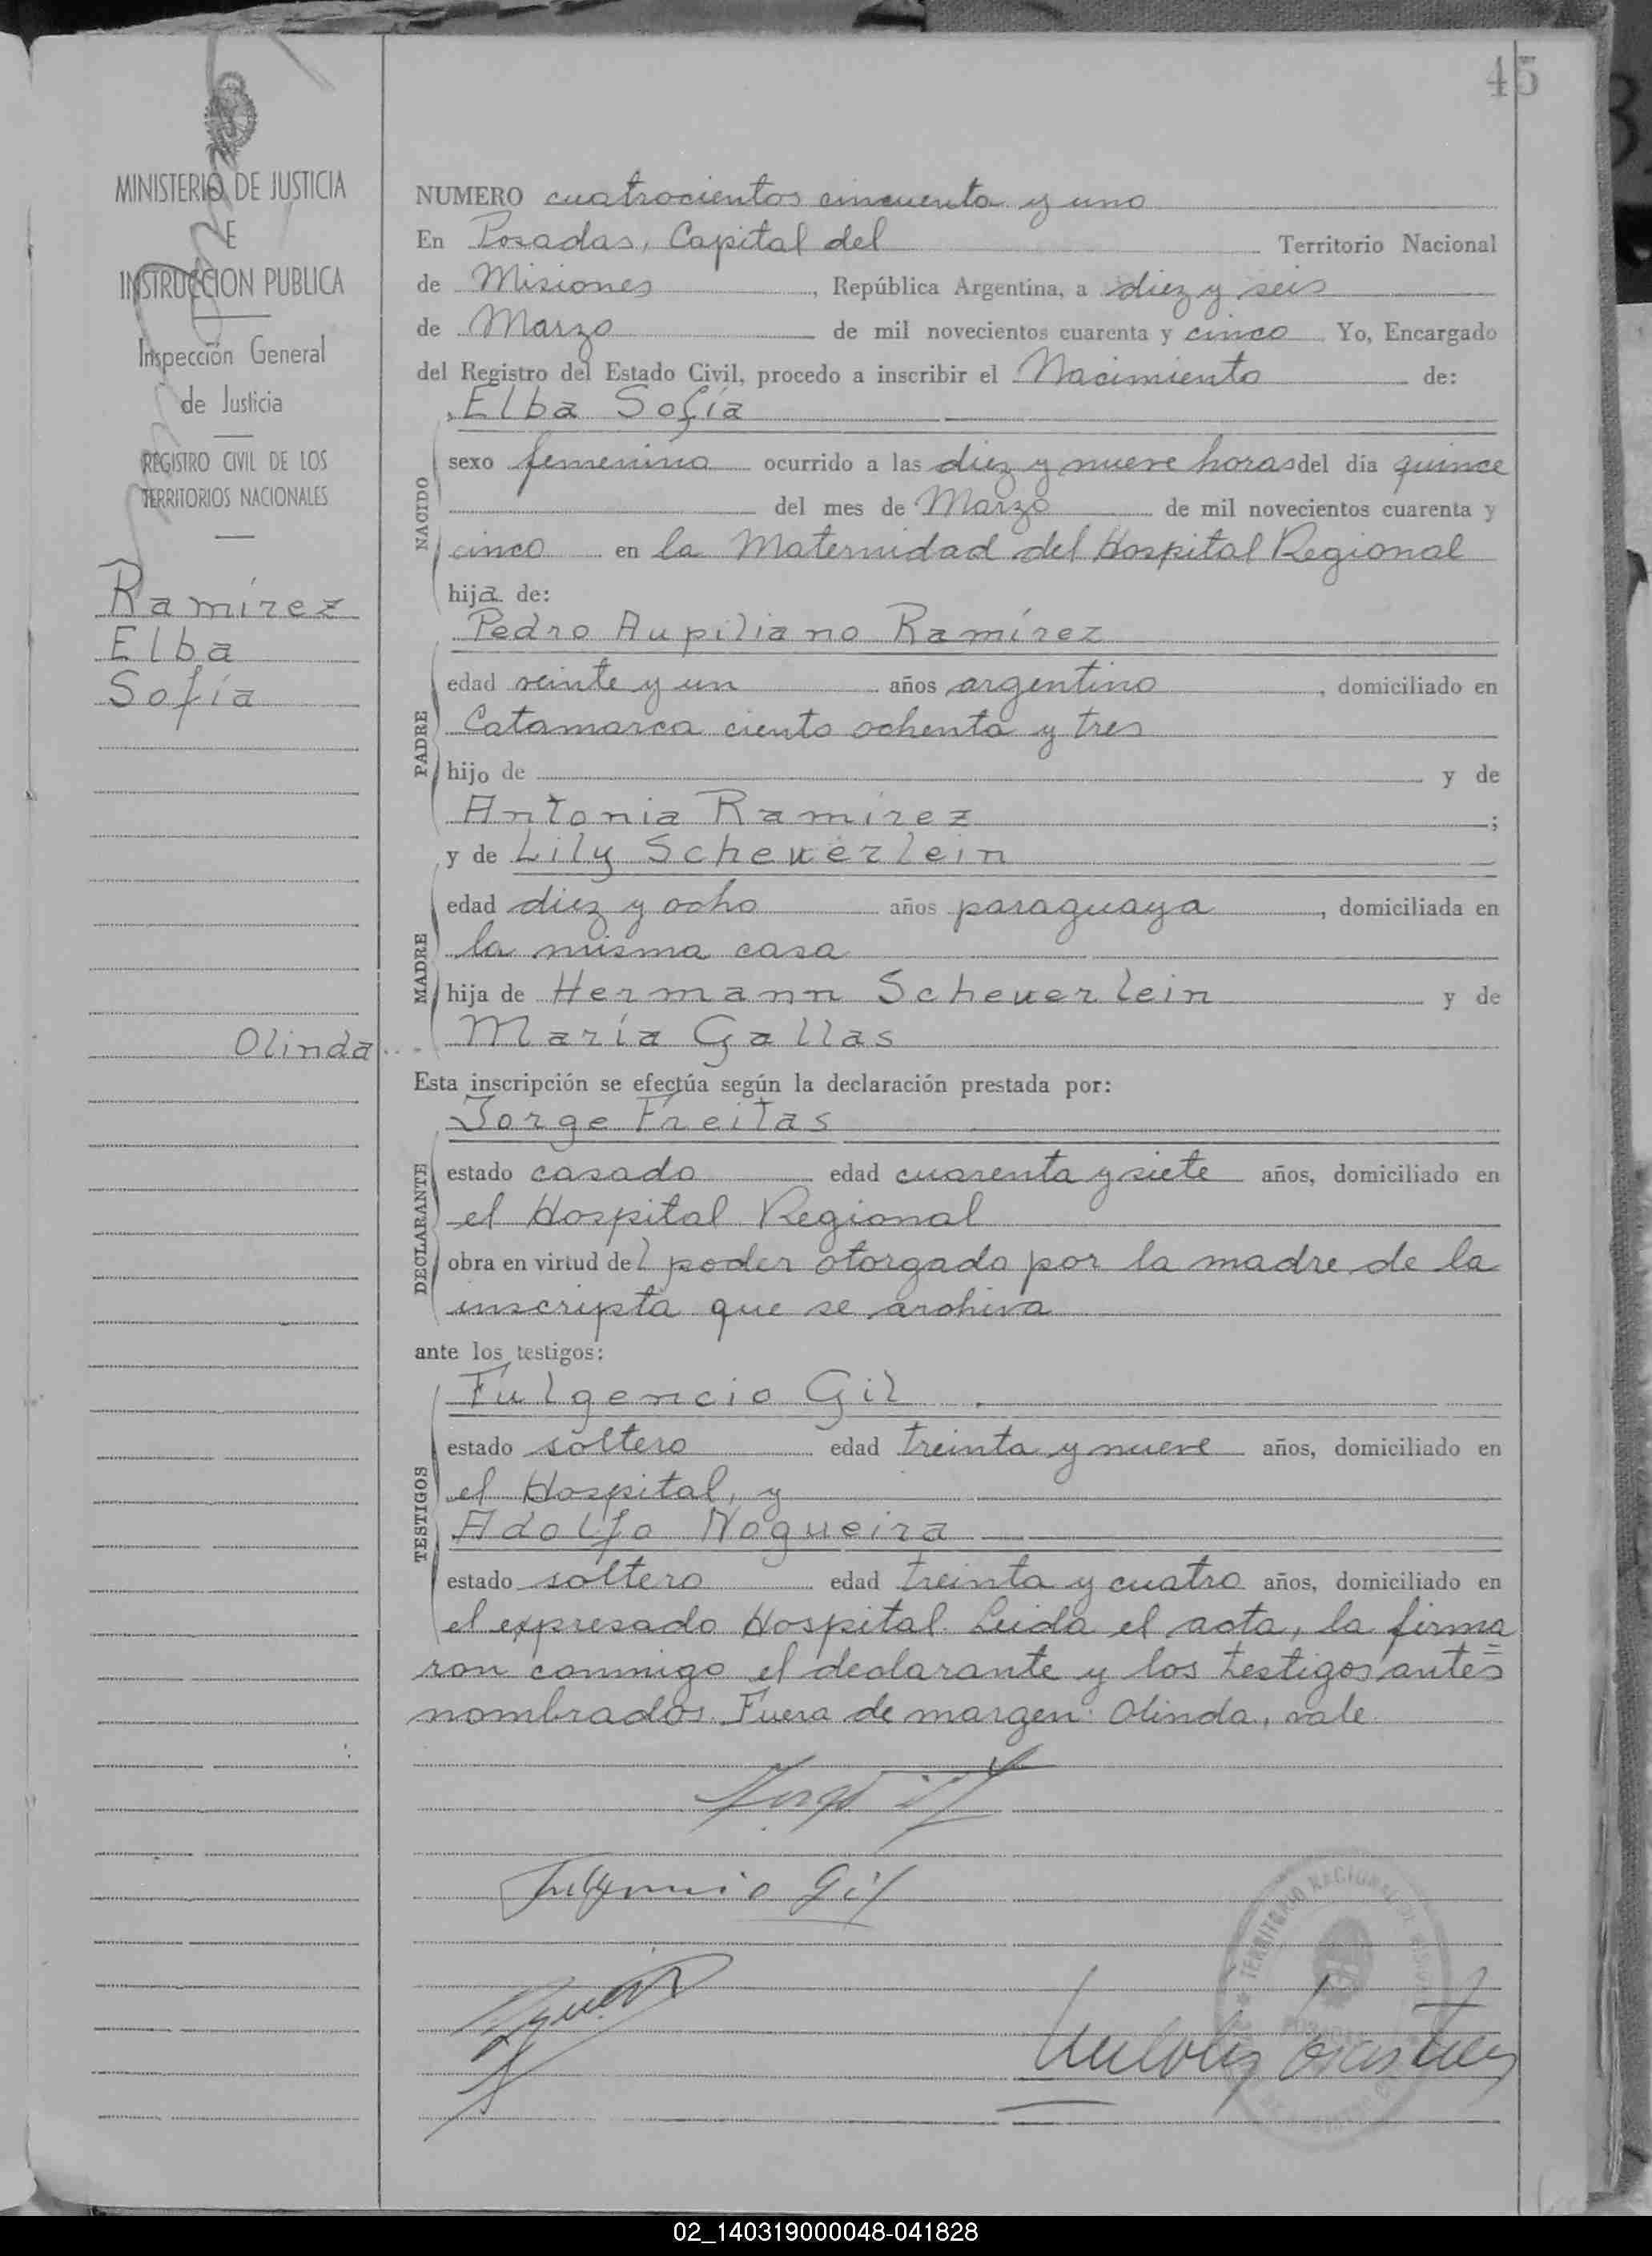 45
MINISTERIO DE JUSTICIA
E
INSTRUCCION PUBLICA
Inspección General
de Justicia
REGISTRO CIVIL DE LOS
TERRITORIOS NACIONALES
Ramírez
Elba
Sofía
Olinda
NUMERO cuatrocientos cincuenta y uno
En Posadas, Capital del Territorio Nacional
de Misiones, República Argentina, a diez y seis
de Marzo de mil novecientos cuarenta y cinco Yo, Encargado
del Registro del Estado Civil, procedo a inscribir el Nacimiento de:
Elba Sofía
NACIDO
sexo femenino ocurrido a las diez y nueve horas del día quince
del mes de Marzo de mil novecientos cuarenta y
cinco en la Maternidad del Hospital Regional
hija de:
Pedro Aupiliano Ramírez
PADRE
edad veinte y un años argentino, domiciliado en
Catamarca ciento ochenta y tres
hijo de y de
Antonia Ramírez;
y de Lily Scheuerlein
MADRE
edad diez y ocho años paraguaya, domiciliada en
la misma casa
hija de Hermann Scheuerlein y de
María Gallas
Esta inscripción se efectúa según la declaración prestada por:
Jorge Freitas
DECLARANTE
estado casado edad cuarenta y siete años, domiciliado en
el Hospital Regional
obra en virtud del poder otorgado por la madre de la
inscripta que se archiva
ante los testigos:
Fulgencio Gil
TESTIGOS
estado soltero edad treinta y nueve años, domiciliado en
el Hospital, y
Adolfo Nogueira
estado soltero edad treinta y cuatro años, domiciliado en
el expresado Hospital. Leida el acta, la firma
ron conmigo el declarante y los testigos antes
nombrados. Fuera de margen: Olinda, vale
Fulgencio Gil
TERRITORIO NACIONAL
02_140319000048-041828